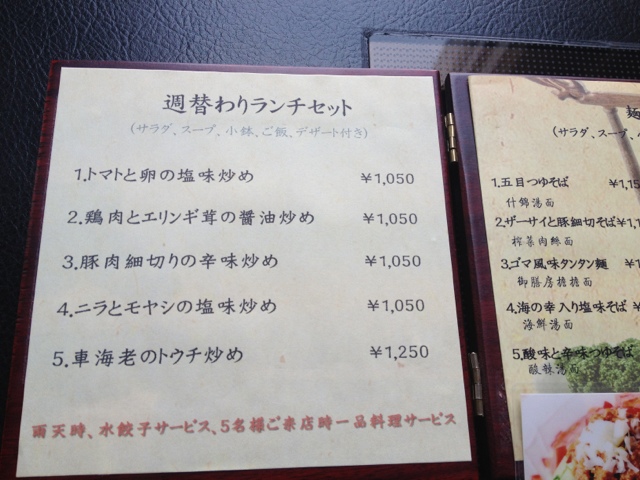 週替わりランチセット
(サラダ、スープ、小鉢、ご飯、デザート付き)
1.トマトと卵の塩味炒め ¥1,050
2.鶏肉とエリンギ茸の醤油炒め ¥1,050
3.豚肉細切りの辛味炒め ¥1,050
4.ニラとモヤシの塩味炒め ¥1,050
5.車海老のトウチ炒め ¥1,250
雨天時、水餃子サービス、5名様ご来店時一品料理サービス
麺
(サラダ、スープ、
1.五目つゆそば ¥1,15
什錦湯面
2.ザーサイと豚細切そば ¥1,1
榨菜肉絲面
3.ゴマ風味タンタン麺 ¥1
御膳房擔擔面
4.海の幸入り塩味そば ¥
海鮮湯面
5.酸味と辛味つゆそば
酸辣湯面